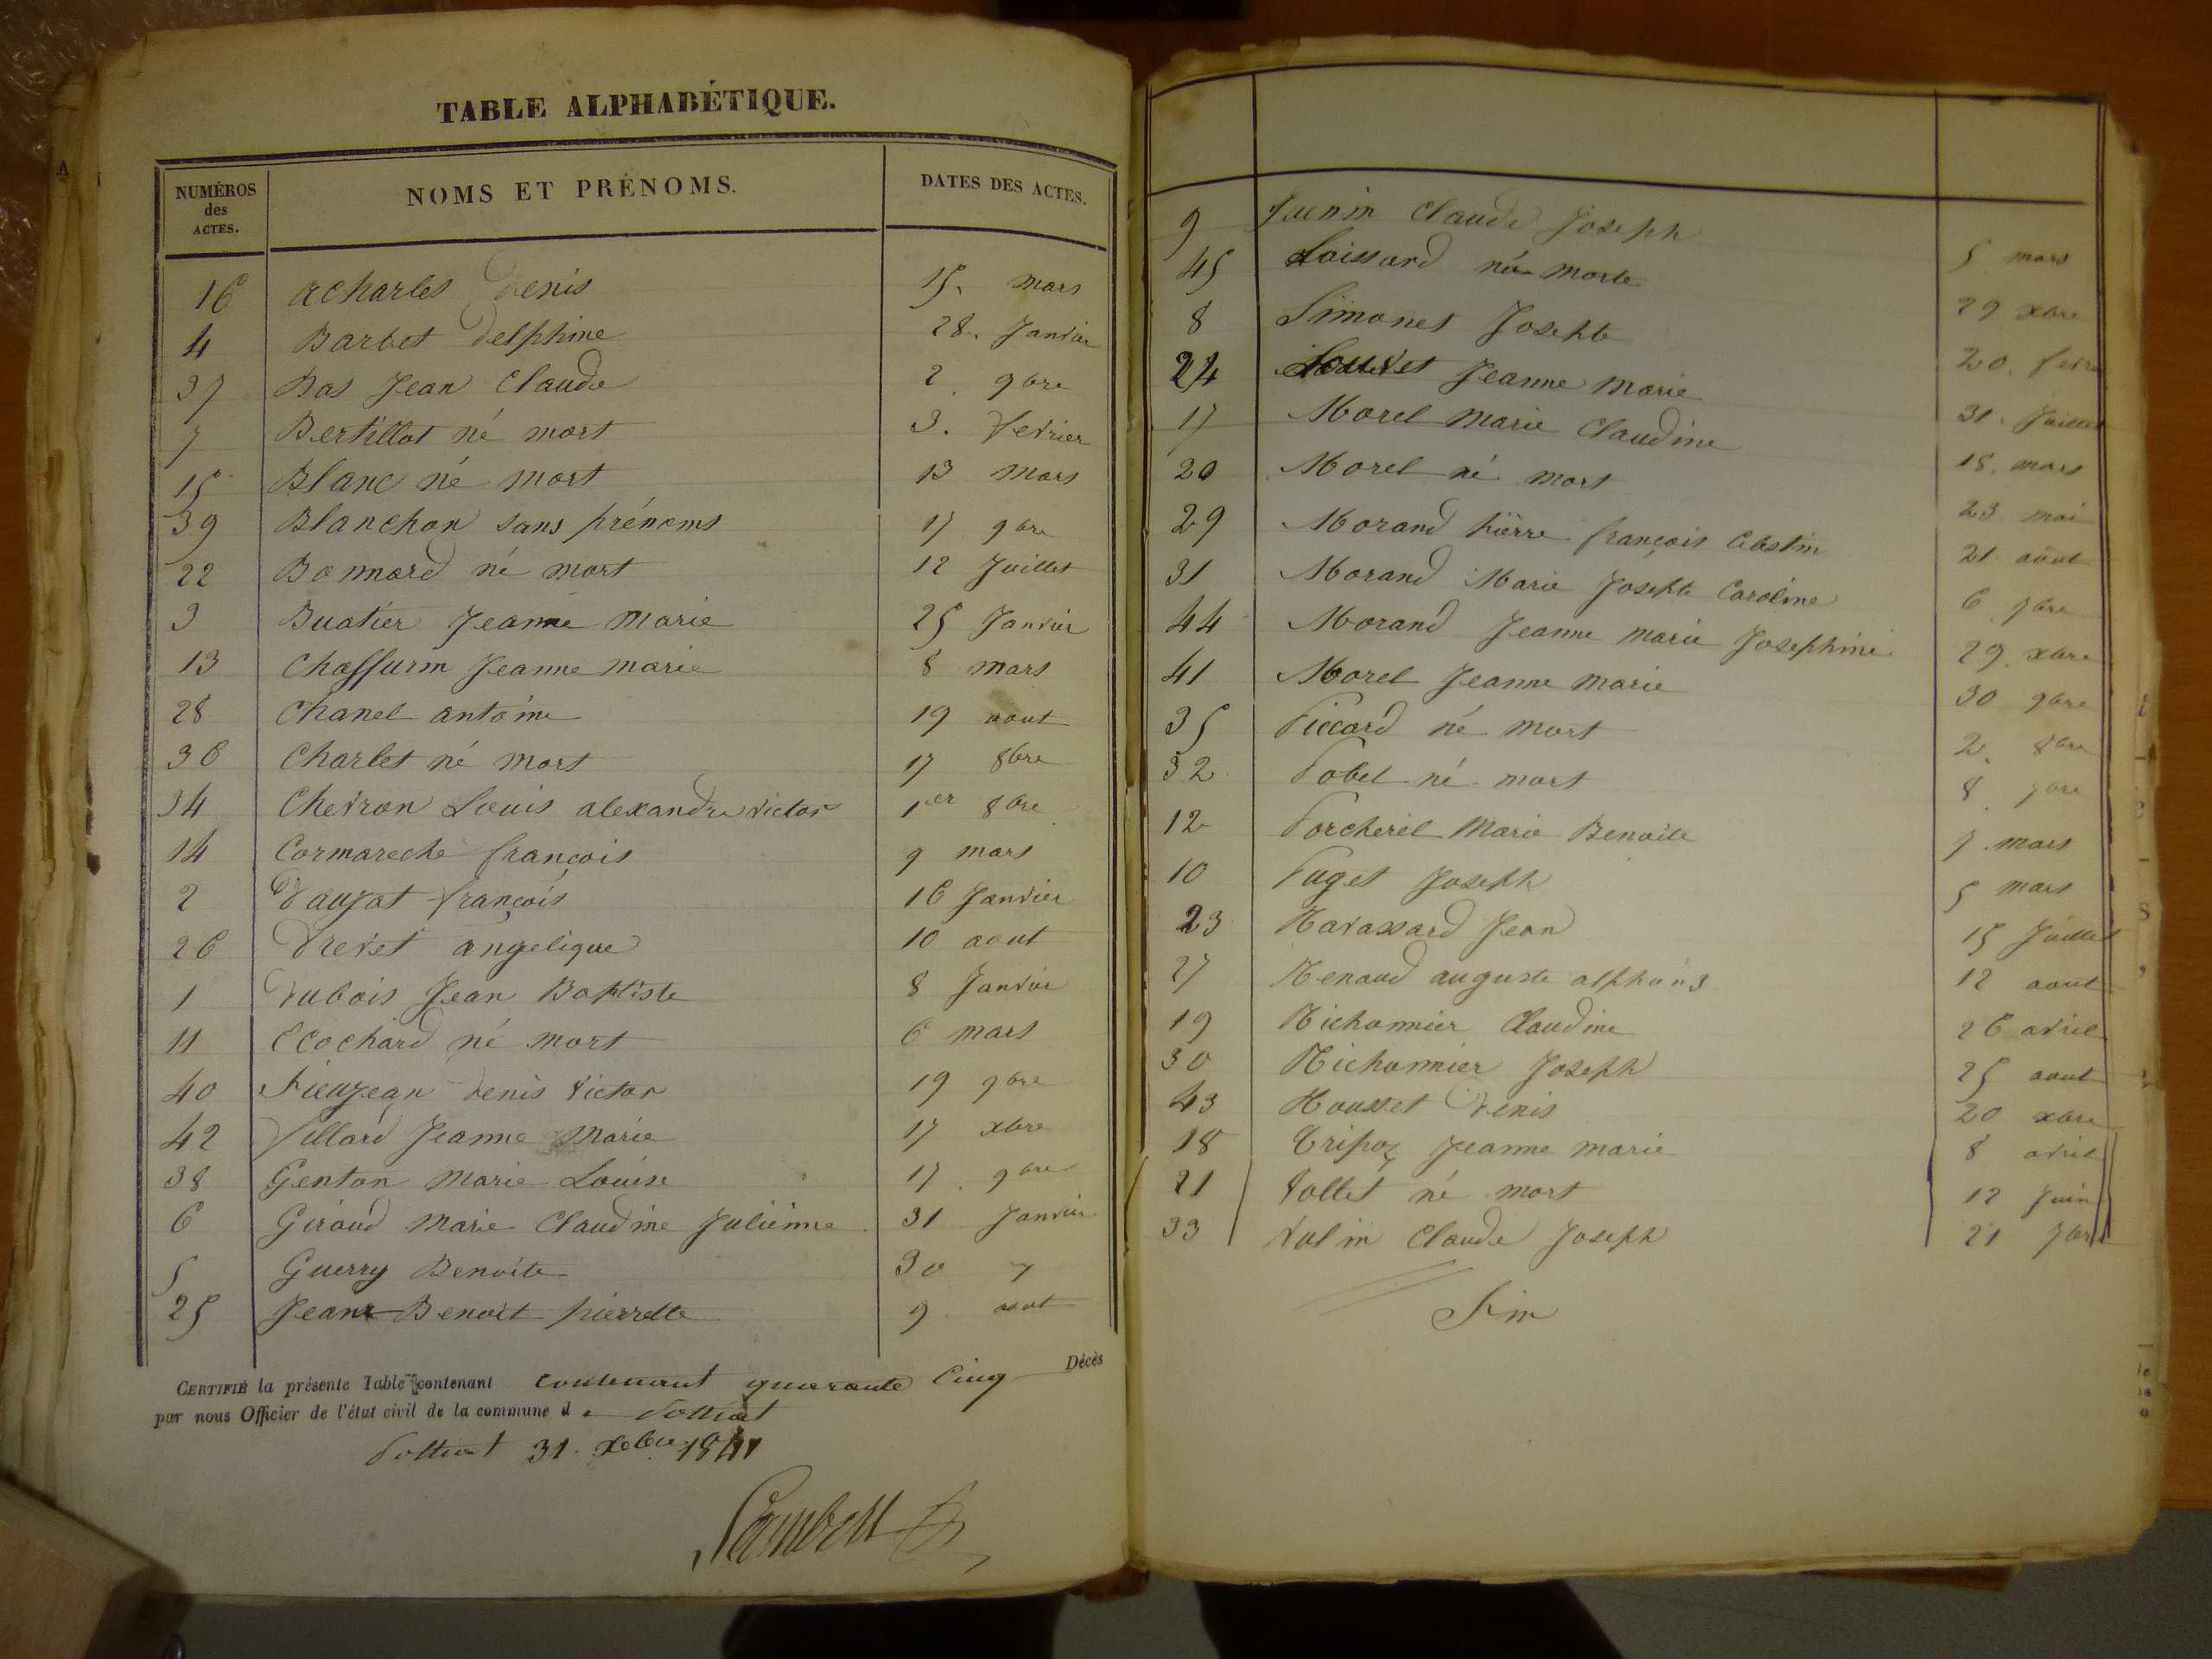 TABLE ALPHABÉTIQUE.
NUMÉROS des ACTES. NOMS ET PRÉNOMS. DATES DES ACTES.
16 acharles Denis 15. mars
4 Barbet Delphine 28. Janvier
37 Bas Jean Claude 2. 9bre
7 Bertillot né mort 3. fevrier
15 Blanc né mort 13 mars
39 Blanchon sans prénoms 17 9bre
22 Bonnard né mort 12 Juillet
3 Buatier Jeanne Marie 25 Janvier
13 Chaffurin Jeanne marie 8 mars
28 Chanel antoine 19 aout
36 Charlet né mort 17 8bre
34 Chevron Louis alexandre victor 1er 8bre
14 Cormareche françois 9 mars
2 Daujat françois 16 Janvier
26 Drevet angelique 10 aout
1 Dubois Jean Baptiste 8 Janvier
11 Ecochard né mort 6 mars
40 Fieujean Denis Victor 19 9bre
42 fillard Jeanne Marie 17 xbre
38 Genton Marie Louise 17. 9bre
6 Giraud Marie Claudine Julienne 31 Janvier
5 Guerry Benoite 30 "
25 Jean Benoit pierrette 9 aout
CERTIFIÉ la présente Table contenant contenant quarante Cinq Décès
par nous Officier de l'état civil de la commune de Polliat
Polliat 31. xbre 1841
9 Junin Claude Joseph 5 mars
45 Loissard né morte 29 xbre
8 Limonet Josephte 20. fevre
24 Louvet Jeanne Marie 31. Juillet
17 Morel Marie Claudine 18. mars
20 Morel né mort 23 mai
29 Morand pierre françois Celestin 21 aout
31 Morand Marie Josephte Caroline 6 7bre
44 Morand Jeanne marie Josephine 29. xbre
41 Morel Jeanne Marie 30 9bre
35 Piccard né mort 2. 8bre
32 Pobel né mort 8. 7bre
12 Porcherel Marie Benoite 7 mars
10 Puget Joseph 5 mars
23 Ravassard Jean 15 Juillet
27 Renaud auguste alphons 12 aout
19 Richonnier Claudine 26 avril
30 Richonnier Joseph 25 aout
43 Rousset Denis 20 xbre
18 Tripoz Jeanne marie 8 avril
21 Vollet né mort 12 Juin
33 Vulin Claude Joseph 21 7bre
Fin